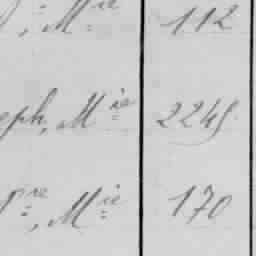 Mie 112
eph, Mie 2245
re, Mie 170